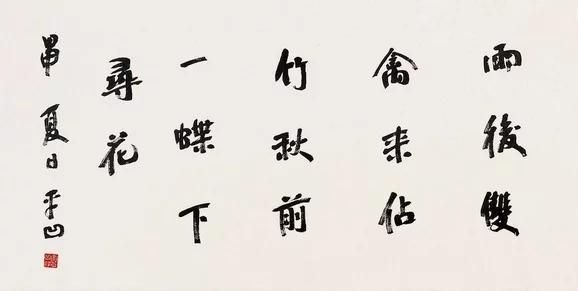 雨後雙
禽来佔
竹秋前
一蝶下
尋花
夏日平凹